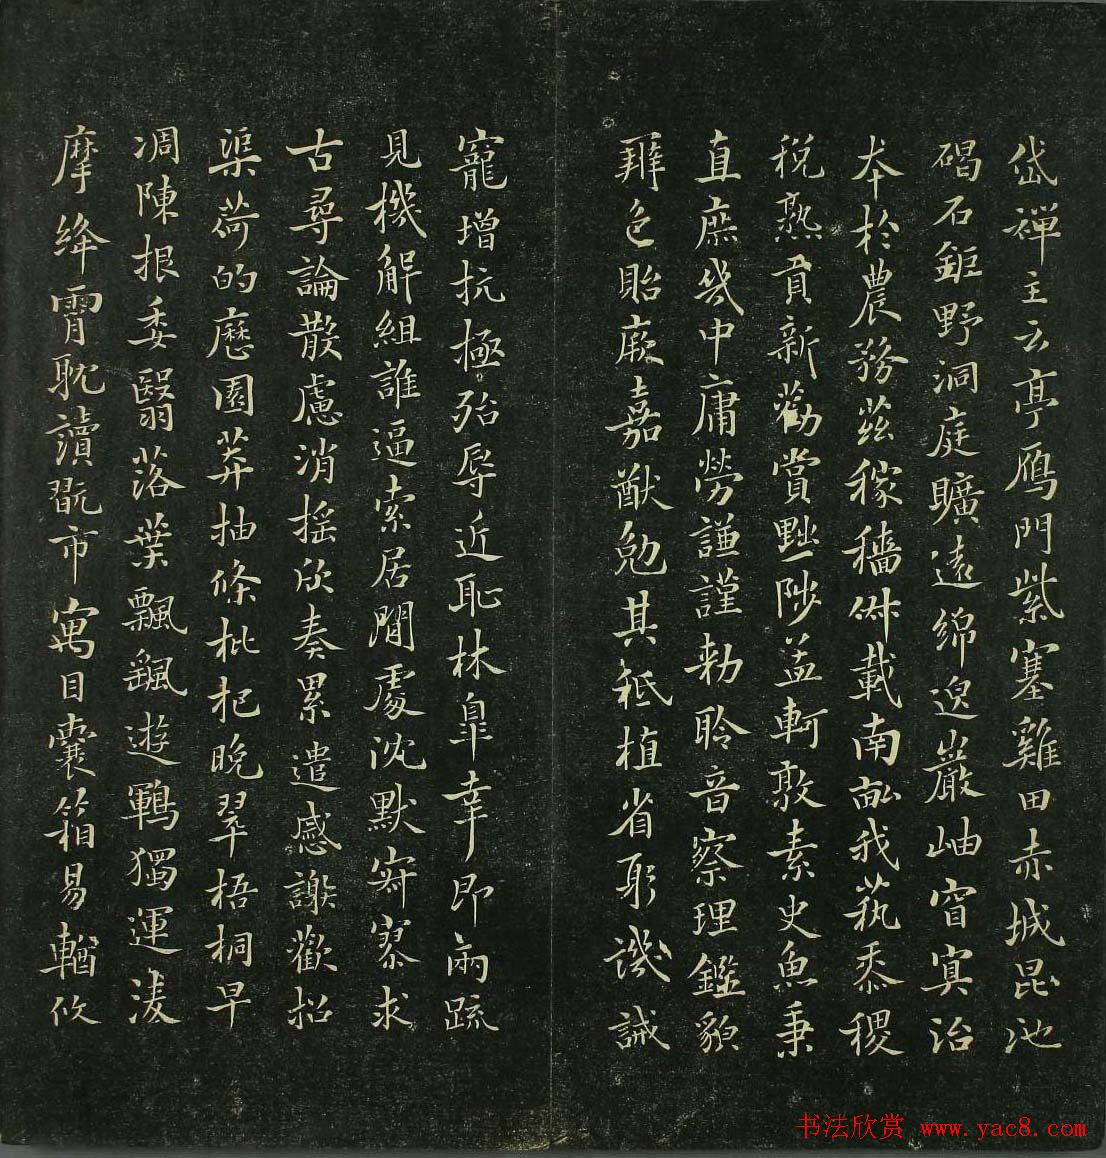 岱禪主云亭鴈門紫塞雞田赤城昆池
碣石鉅野洞庭曠遠綿邈巖岫窅冥治
本於農務茲稼穡俶載南畝我蓺黍稷
稅熟貢新勸賞黜陟孟軻敦素史魚秉
直庶幾中庸勞謙謹勅聆音察理鑑貌
辨色貽厥嘉猷勉其祗植省躬譏誡
寵增抗極殆辱近恥林皋幸即兩疏
見機解組誰逼索居閒處沈默寂寥求
古尋論散慮消搖欣奏累遣慼謝歡招
渠荷的歷園莽抽條枇杷晚翠梧桐早
凋陳根委翳落葉飄颻遊鵾獨運凌
摩絳霄耽讀翫市寓目囊箱易輶攸
书法欣赏 www.yac8.com